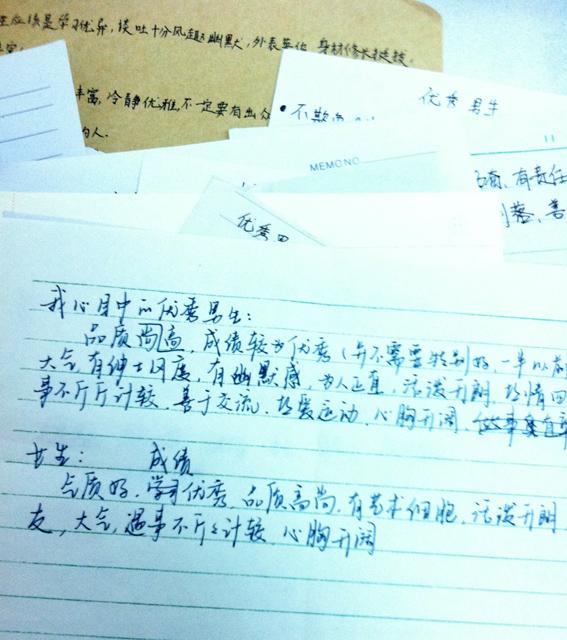 应该是学习优异，谈吐十分风趣幽默，外表英俊 身材修长挺拔
丰富，冷静优雅，不定要有出众
为人.
优秀男生
• 不欺
MEMO NO.
有责任
落、善
优秀男
我心目中的优秀男生：
品质高尚，成绩较为优秀（并不需要特别好，一半以前
大气，有绅士风度，有幽默感，为人正直，活泼开朗，热情四
事不斤斤计较，善于交流，热爱运动，心胸开阔，
女生： 成绩
气质好，学习优秀，品质高尚，有艺术细胞，活泼开朗
友，大气，遇事不斤斤计较，心胸开阔